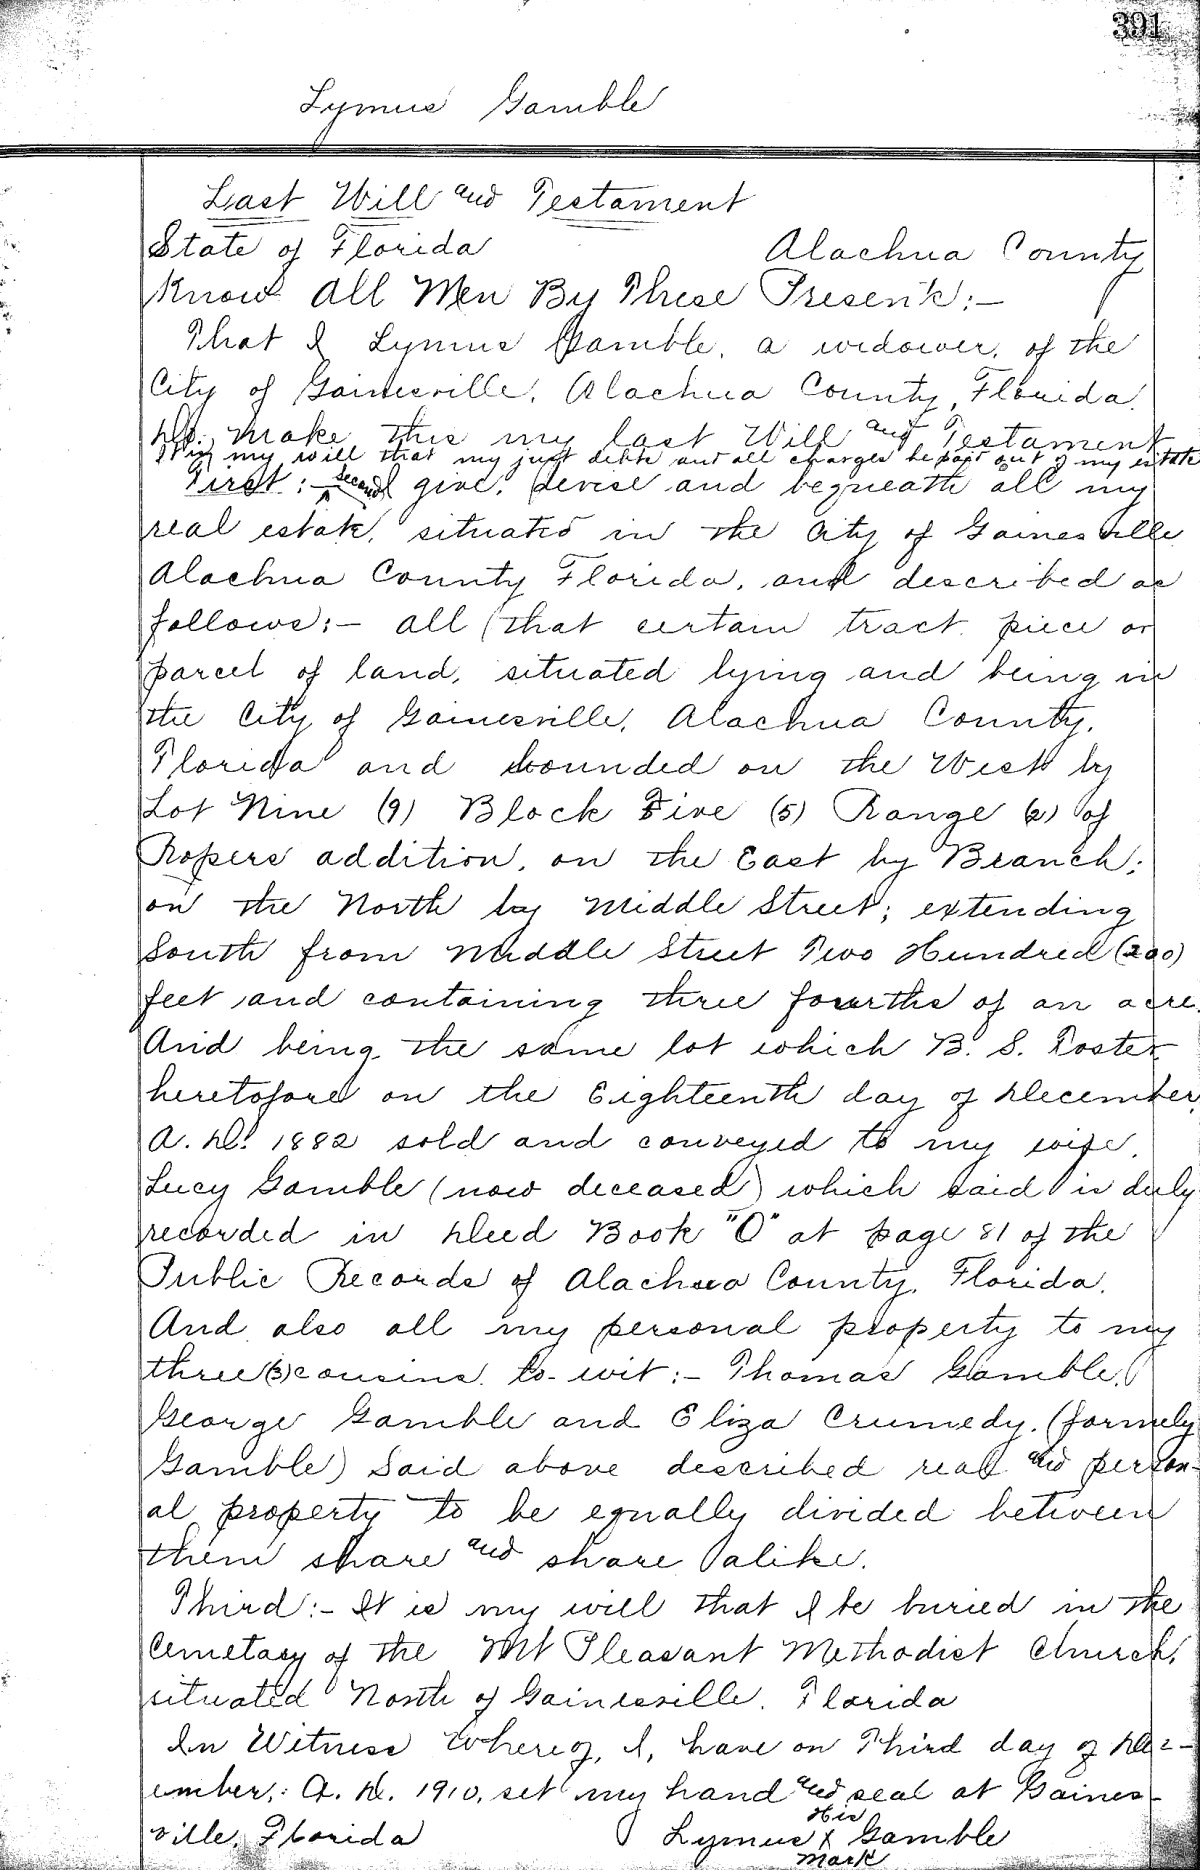 391
Lymus Gamble
Last Will and Testament
State of Florida Alachua County
Know All Men By These Presents:-
That I Lymus Gamble, a widower, of the
City of Gainesville, Alachua County, Florida,
Do. make this my last Will and Testament
It is my will that my just debts and all charges be paid out of my estate
First:- Second I give, devise and bequeath all my
real estate, situated in the City of Gainesville
Alachua County Florida, and described as
follows:- all that certain tract, piece or
parcel of land, situated lying and being in
the City of Gainesville, Alachua County,
Florida and bounded on the West by
Lot Nine (9) Block Five (5) Range (2) of
Ropers addition, on the East by Branch;
on the North by Middle Street; extending
South from Middle Street Two Hundred (200)
feet and containing three fourths of an acre.
And being the same lot which B. S. Foster
heretofore on the Eighteenth day of December,
A. D. 1882 sold and conveyed to my wife,
Lucy Gamble (now deceased) which said is duly
recorded in Deed Book "O" at page 81 of the
Public Records of Alachua County, Florida.
And also all my personal property to my
three (3) cousins, to-wit:- Thomas Gamble,
George Gamble and Eliza Crumedy, (formely
Gamble) Said above described real and person-
al property to be equally divided between
them share and share alike.
Third:- It is my will that I be buried in the
Cemetary of the Mt Pleasant Methodist Church,
situated North of Gainesville, Florida
In Witness Whereof, I, have on Third day of Dec-
ember, A. D. 1910, set my hand and seal at Gaines-
ville, Florida His
Lymus X Gamble
Mark